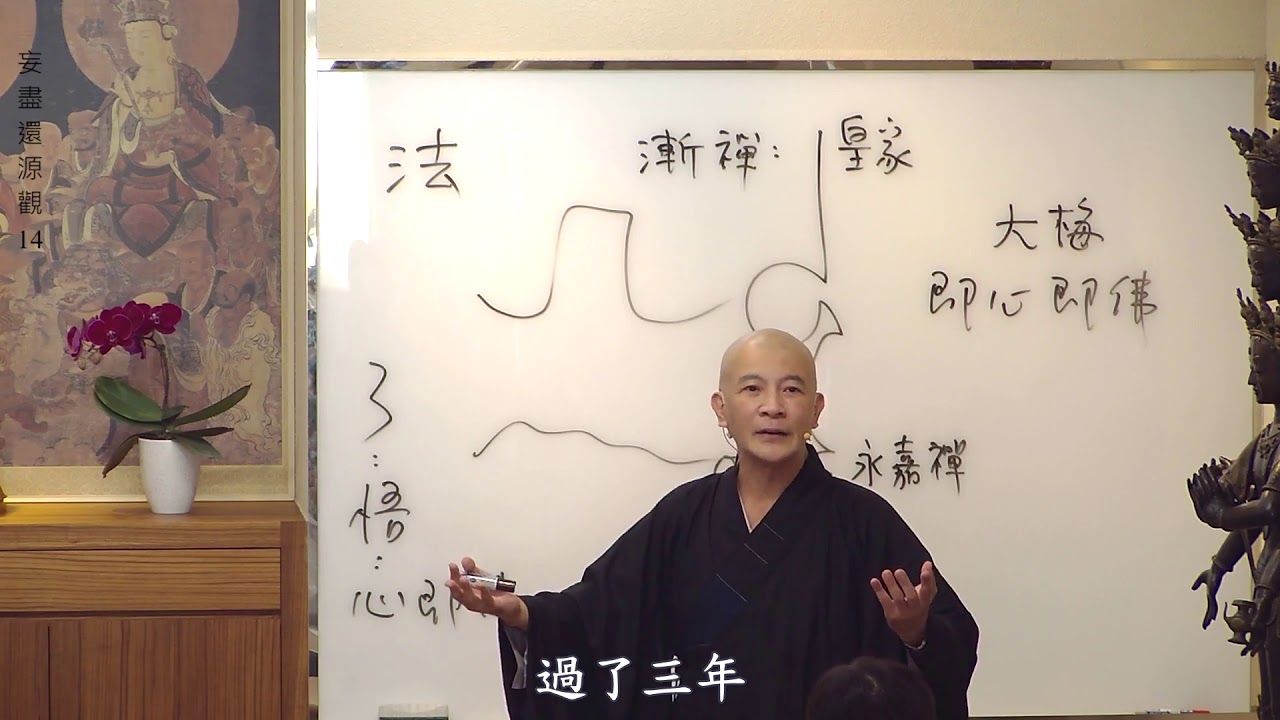 妄盡還源觀14
法
漸禪：皇家
大梅
即心即佛
了
：
悟
：
心即
永嘉禪
過了三年